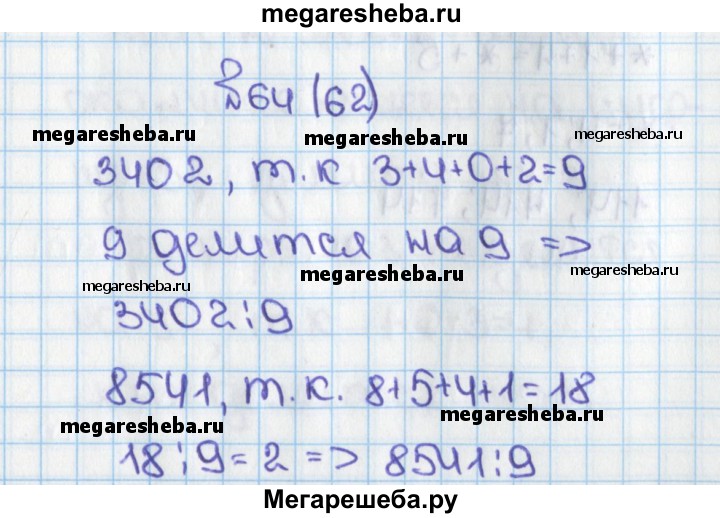 megaresheba.ru
№64 (62)
megaresheba.ru megaresheba.ru
3402, т.к 3+4+0+2=9
9 делится на 9 =>
megaresheba.ru megaresheba.ru megaresheba.ru
3402⋮9
8541, т.к. 8+5+4+1=18
megaresheba.ru megaresheba.ru
18⋮9=2 => 8541⋮9
Мегарешеба.ру